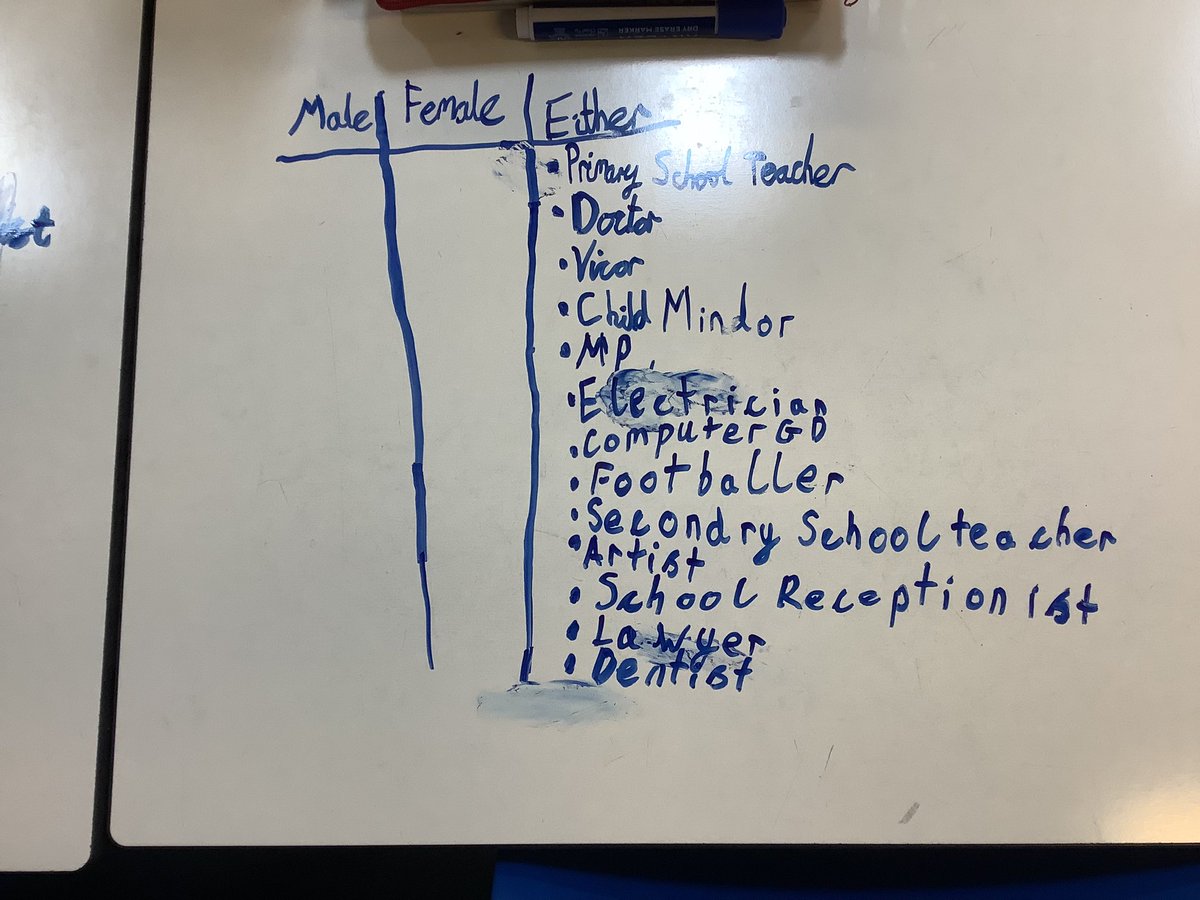 DRY ERASE MARKER
Male Female Either
• Primary School Teacher
• Doctor
• Vicor
• Child Mindor
• MP
• Electrician
• Computer GD
• Footballer
• Secondry School teacher
• Artist
• School Receptionist
• Lawyer
• Dentist